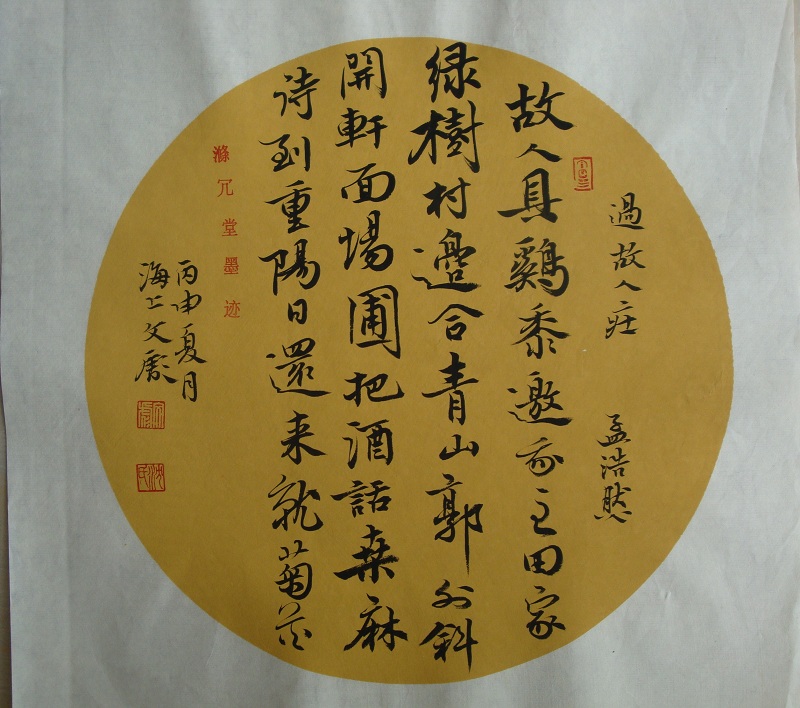 過故人莊 孟浩然
故人具鷄黍邀我至田家
绿樹村邊合青山郭外斜
開軒面場圃把酒話桑麻
詩到重陽日還来就菊花
滌冗堂墨迹
丙申夏月
海上文